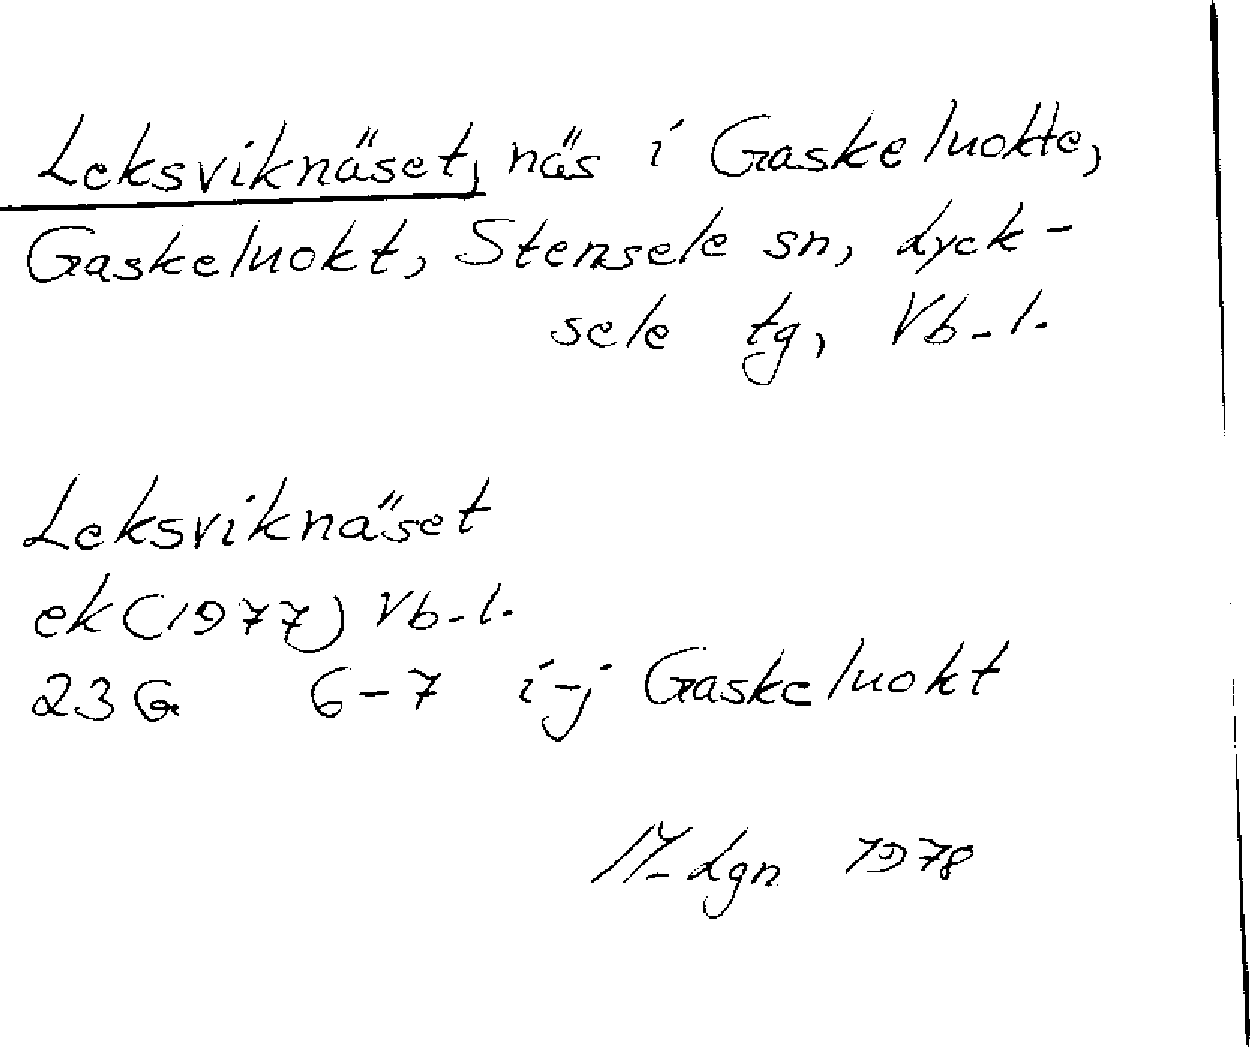 Leksviknäset, näs i Gaskeluokte,
Gaskeluokt, Stensele sn, Lyck-
sele tg, Vb. l.
Leksviknäset
ek (1977) Vb. l.
23G 6-7 i-j Gaskeluokt
M. Lgn 1978